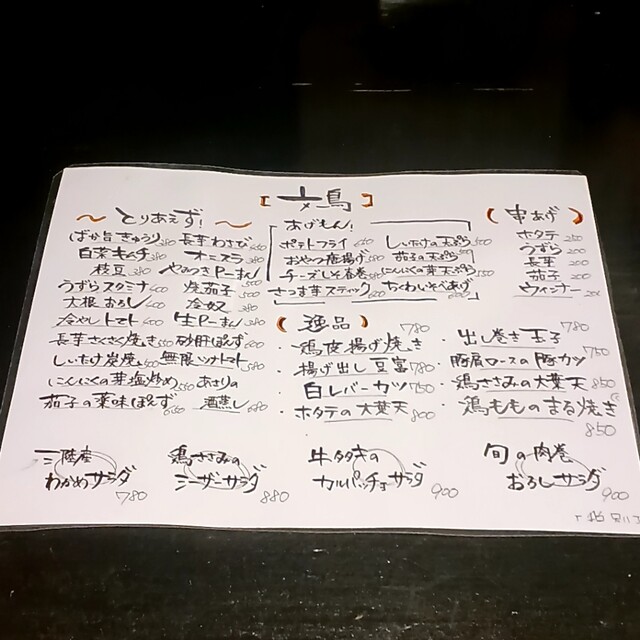 [文鳥]
~とりあえず!~
ばか旨きゅうり 長芋わさび
白菜キムチ 380 オニスラ 380
枝豆 380 やみつきPーまん
うずらスタミナ 400 焼茄子 500
大根おろし 400 冷奴 380
冷やしトマト 400 生Pーまん 380
長芋さくさく焼き 550 砂肝ぽん酢 600
しいたけ炭焼 500 無限ツナトマト 580
にんにくの芽塩炒め 550 あさりの
茄子の薬味ぽん酢 酒蒸し 680
あげもん!
ポテトフライ しいたけの天ぷら 500
おやつ唐揚げ 茄子の天ぷら 500
チーズしそ春巻 にんにくの芽天ぷら
さつま芋スティック 600 ちくわいそべあげ
(串あげ)
ホタテ 250
うずら 200
長芋 200
茄子 200
ウィンナー 200
(逸品)
・鶏皮揚げ焼き 780
・揚げ出し豆富 780
・白レバーカツ 750
・ホタテの大葉天 800
・出し巻き玉子 780
・豚肩ロースの豚カツ 750
・鶏ささみの大葉天 850
・鶏もものまる焼き 850
三陸産
わかめサラダ 780
鶏ささみの
シーザーサラダ 880
牛タタキの
カルパッチョサラダ 900
旬の肉巻
おろしサラダ 900